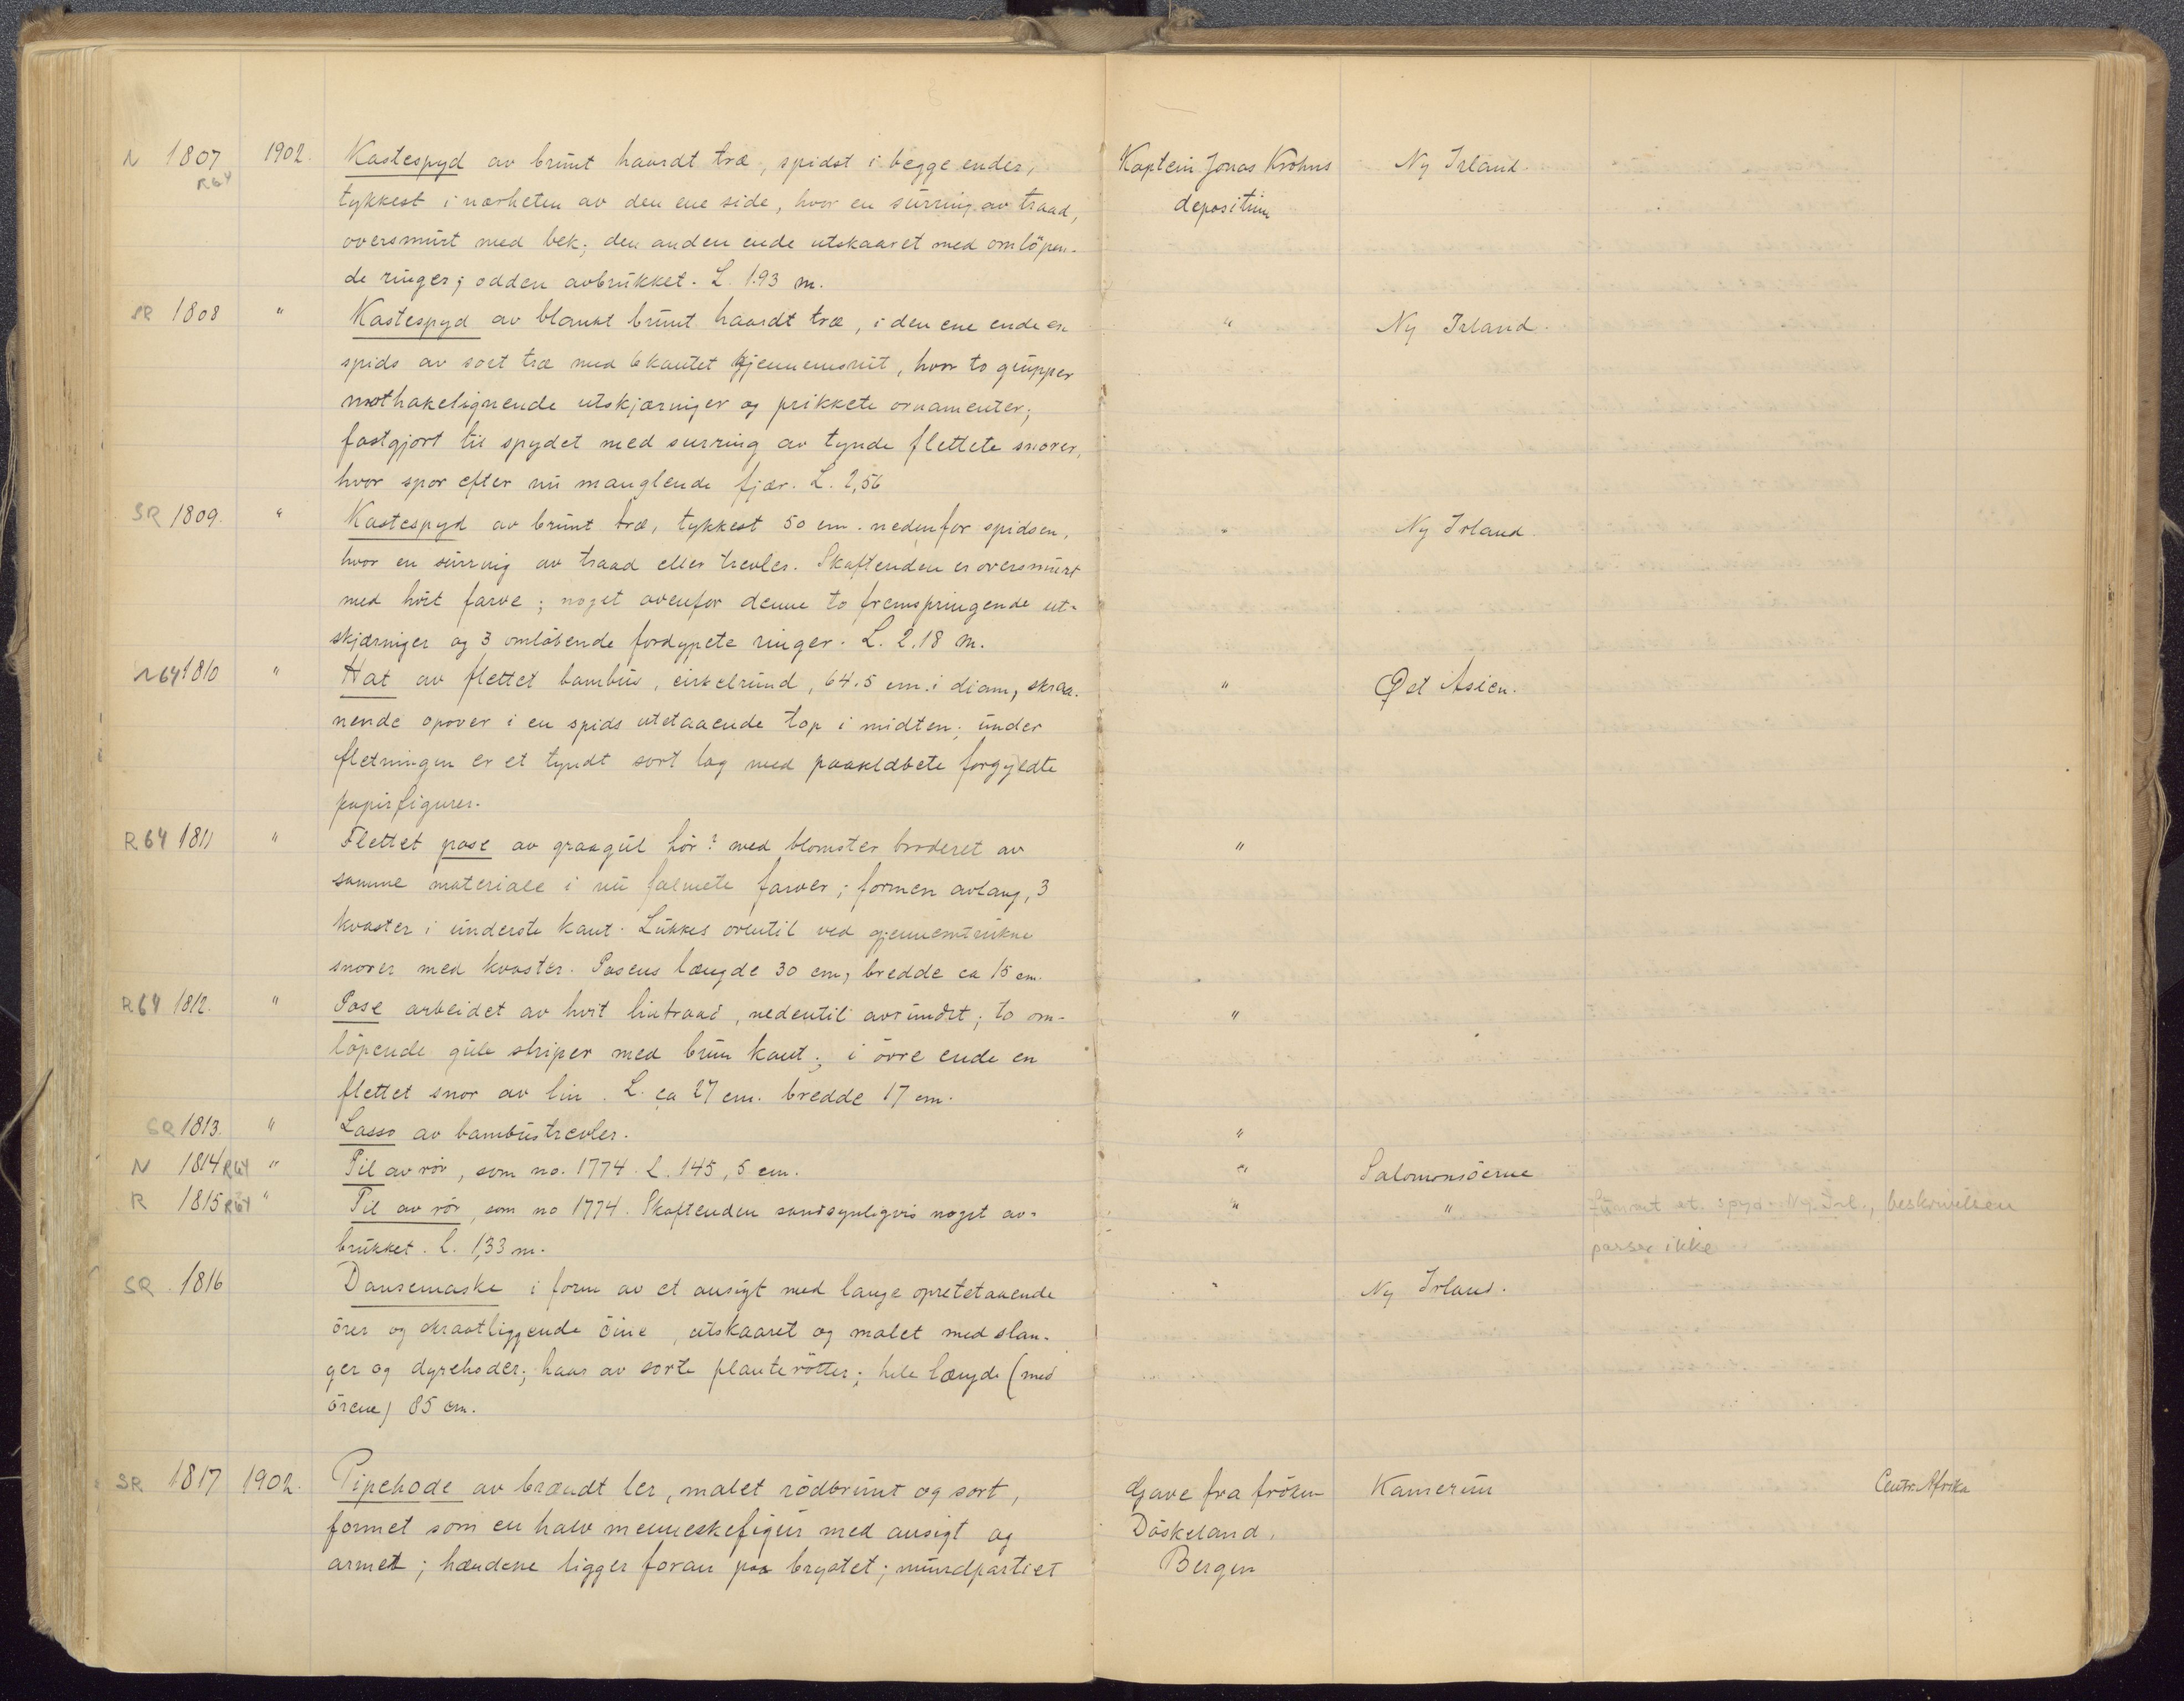 N 1807 1902. Kastespyd av brunt haardt træ, spidst i begge ender, Kaptein Jonas Krohns Ny Irland.
R64 tykkest i nærheten av den ene side, hvor en surring av traad, depositum
oversmurt med bek; den anden ende utskaaret med omlöpen-
de ringer; odden avbrukket. L. 1.93 m.
SR 1808 " Kastespyd av blankt brunt haardt træ, i den ene ende en " Ny Irland.
spids av sort træ med 6kantet gjennemsnit, hvor to grupper
mothakelignende utskjæringer og prikkete ornamenter;
fastgjort til spydet med surring av tynde flettete snorer,
hvor spor efter nu manglende fjær. L. 2,56
SR 1809. " Kastespyd av brunt træ, tykkest 50 cm. nedenfor spidsen, " Ny Irland
hvor en surring av traad eller trevler. Skaftenden er oversmurt
med hvit farve; noget ovenfor denne to fremspringende ut-
skjæringer og 3 omlöbende fordypete ringer. L. 2.18 m.
R64 1810 " Hat av flettet bambus, cirkelrund, 64.5 cm. i diam, skraa- " Øst Asien.
nende opover i en spids utstaaende top i midten; under
fletningen er et tyndt sort lag med paaklæbete forgyldte
papirfigurer.
R64 1811 " Flettet pose av graagul hör? med blomster broderet av "
samme materiale i nu falmete farver; formen avlang, 3
kvaster i underste kant. Lukkes oventil ved gjennemtrukne
snorer med kvaster. Posens længde 30 cm, bredde ca 15 cm.
R64 1812. " Pose arbeidet av hvit lintraad, nedentil avrundet; to om- "
löpende gule striper med brun kant; i övre ende en
flettet snor av lin. L. ca 27 cm. bredde 17 cm.
SR 1813. " Lasso av bambustrevler. "
N 1814 R64 " Pil av rör, som no. 1774. L. 145,5 cm. " Salomonsöerne
R 1815 R64 " Pil av rör, som no 1774. Skaftenden sandsynligvis noget av- " " et spyd Ny Irl., beskrivelsen
brukket. L. 1,33 m. passer ikke
SR 1816 Dansemaske i form av et ansigt med lange opretstaaende " Ny Irland.
örer og skraatliggende öine, utskaaret og malet med slan-
ger og dyrehoder; haar av sorte planterötter; hele længde (med
örene) 85 cm.
SR 1817 1902. Pipehode av brændt ler, malet rödbrunt og sort, Gave fra fröken Kamerun Centr. Afrika
formet som en halv menneskefigur med ansigt og Döskeland,
armer; hændene ligger foran paa brystet; mundpartiet Bergen